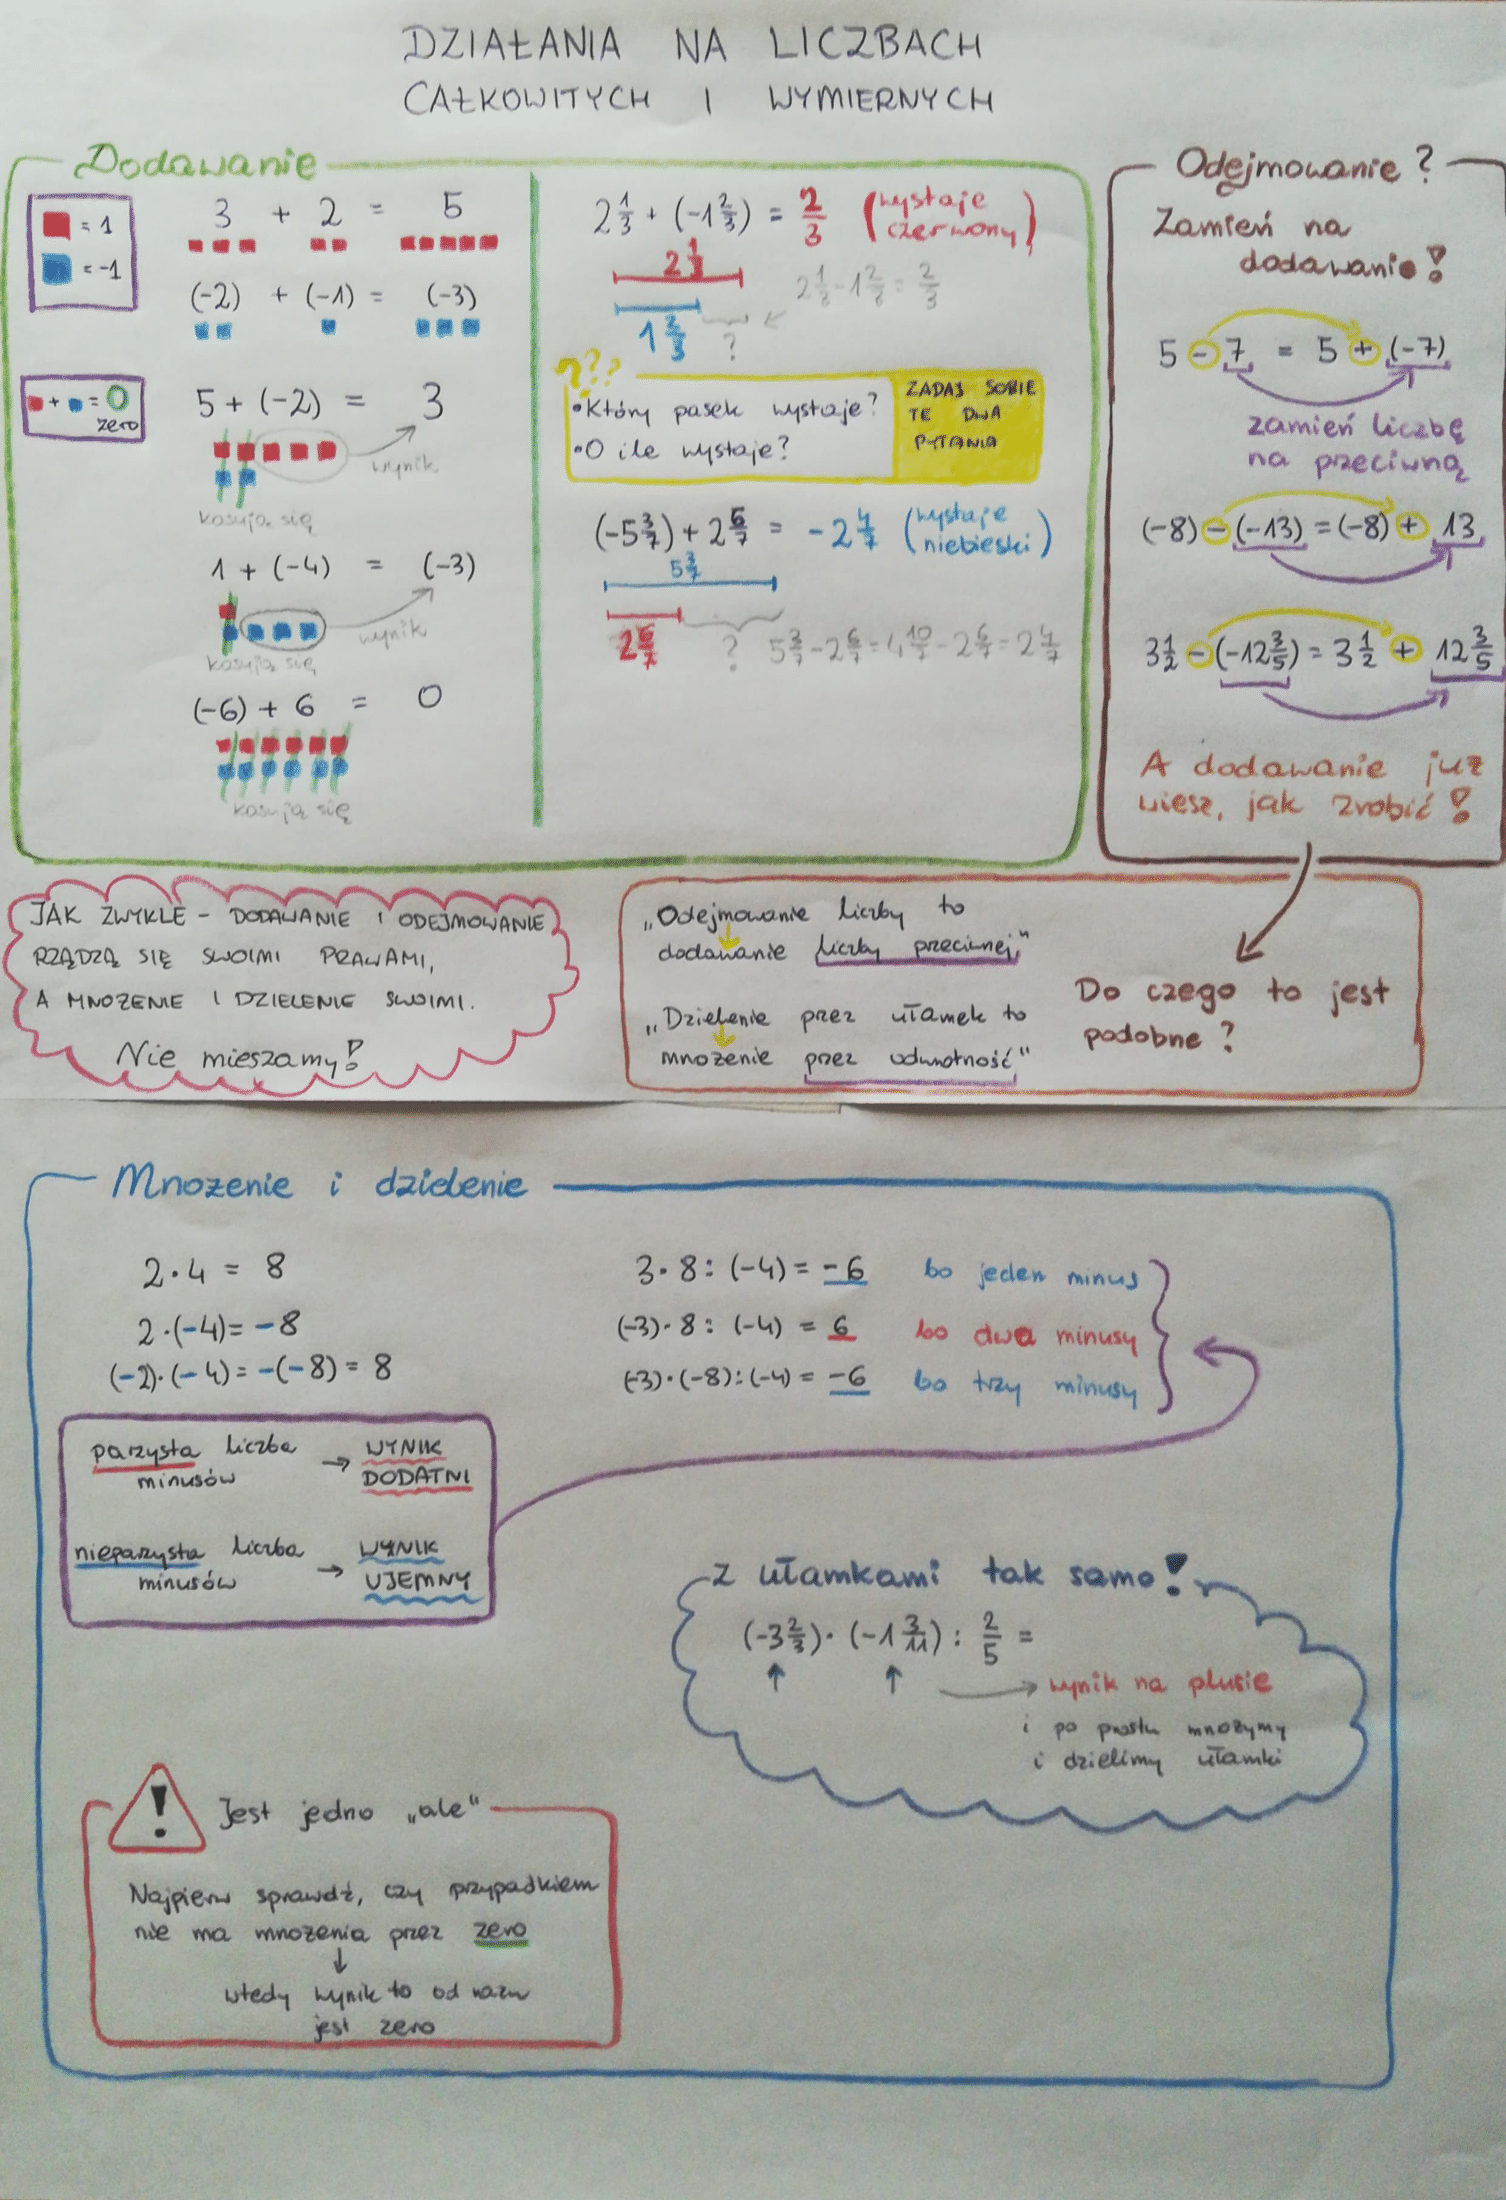 DZIAŁANIA NA LICZBACH
CAŁKOWITYCH I WYMIERNYCH
Dodawanie
= 1
= -1
3 + 2 = 5
(-2) + (-1) = (-3)
+ = 0
zero
5 + (-2) = 3
wynik
kasują się
1 + (-4) = (-3)
wynik
kasują się
(-6) + 6 = 0
kasują się
2 1/3 + (-1 2/3) = 2/3 (wystaje
czerwony)
2 1/3
2 1/3 - 1 2/3 = 2/3
1 2/3
?
???
•Który pasek wystaje?
•O ile wystaje?
ZADAJ SOBIE
TE DWA
PYTANIA
(-5 3/7) + 2 6/7 = -2 4/7 (wystaje
niebieski)
5 3/7
2 6/7
? 5 3/7 - 2 6/7 = 4 10/7 - 2 6/7 = 2 4/7
Odejmowanie?
Zamień na
dodawanie!
5 - 7 = 5 + (-7)
zamień liczbę
na przeciwną
(-8) - (-13) = (-8) + 13
3 1/2 - (-12 3/5) = 3 1/2 + 12 3/5
A dodawanie już
wiesz, jak zrobić!
JAK ZWYKLE - DODAWANIE I ODEJMOWANIE
RZĄDZĄ SIĘ SWOIMI PRAWAMI,
A MNOŻENIE I DZIELENIE SWOIMI.
Nie mieszamy!
„Odejmowanie liczby to
dodawanie liczby przeciwnej"
„Dzielenie przez ułamek to
mnożenie przez odwrotność"
Do czego to jest
podobne?
Mnożenie i dzielenie
2·4 = 8
2·(-4) = -8
(-2)·(-4) = -(-8) = 8
3·8:(-4) = -6 bo jeden minus
(-3)·8:(-4) = 6 bo dwa minusy
(-3)·(-8):(-4) = -6 bo trzy minusy
parzysta liczba
minusów → WYNIK
DODATNI
nieparzysta liczba
minusów → WYNIK
UJEMNY
Z ułamkami tak samo!
(-3 2/3)·(-1 3/11) : 2/5 =
wynik na plusie
i po prostu mnożymy
i dzielimy ułamki
! Jest jedno „ale"
Najpierw sprawdź, czy przypadkiem
nie ma mnożenia przez zero
wtedy wynik to od razu
jest zero